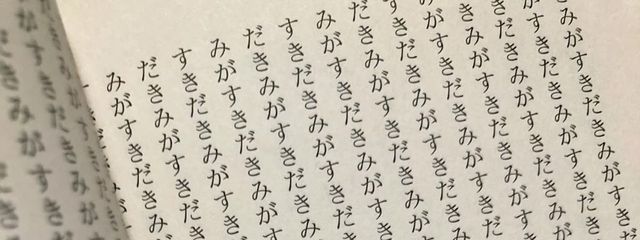 みがすきだきみがすきだ
きみがすきだきみがすきだ
だきみがすきだきみがすき
がすきだきみがすきだき
きだきみがすきだきみが
すきだきみがすきだきみ
だきみがすきだきみが
みがすきだきみがすき
すきだきみがすきだき
だきみがすきだきみ
みがすきだきみがす
すきだきみがすき
だきみがすきだき
みがすきだきみ